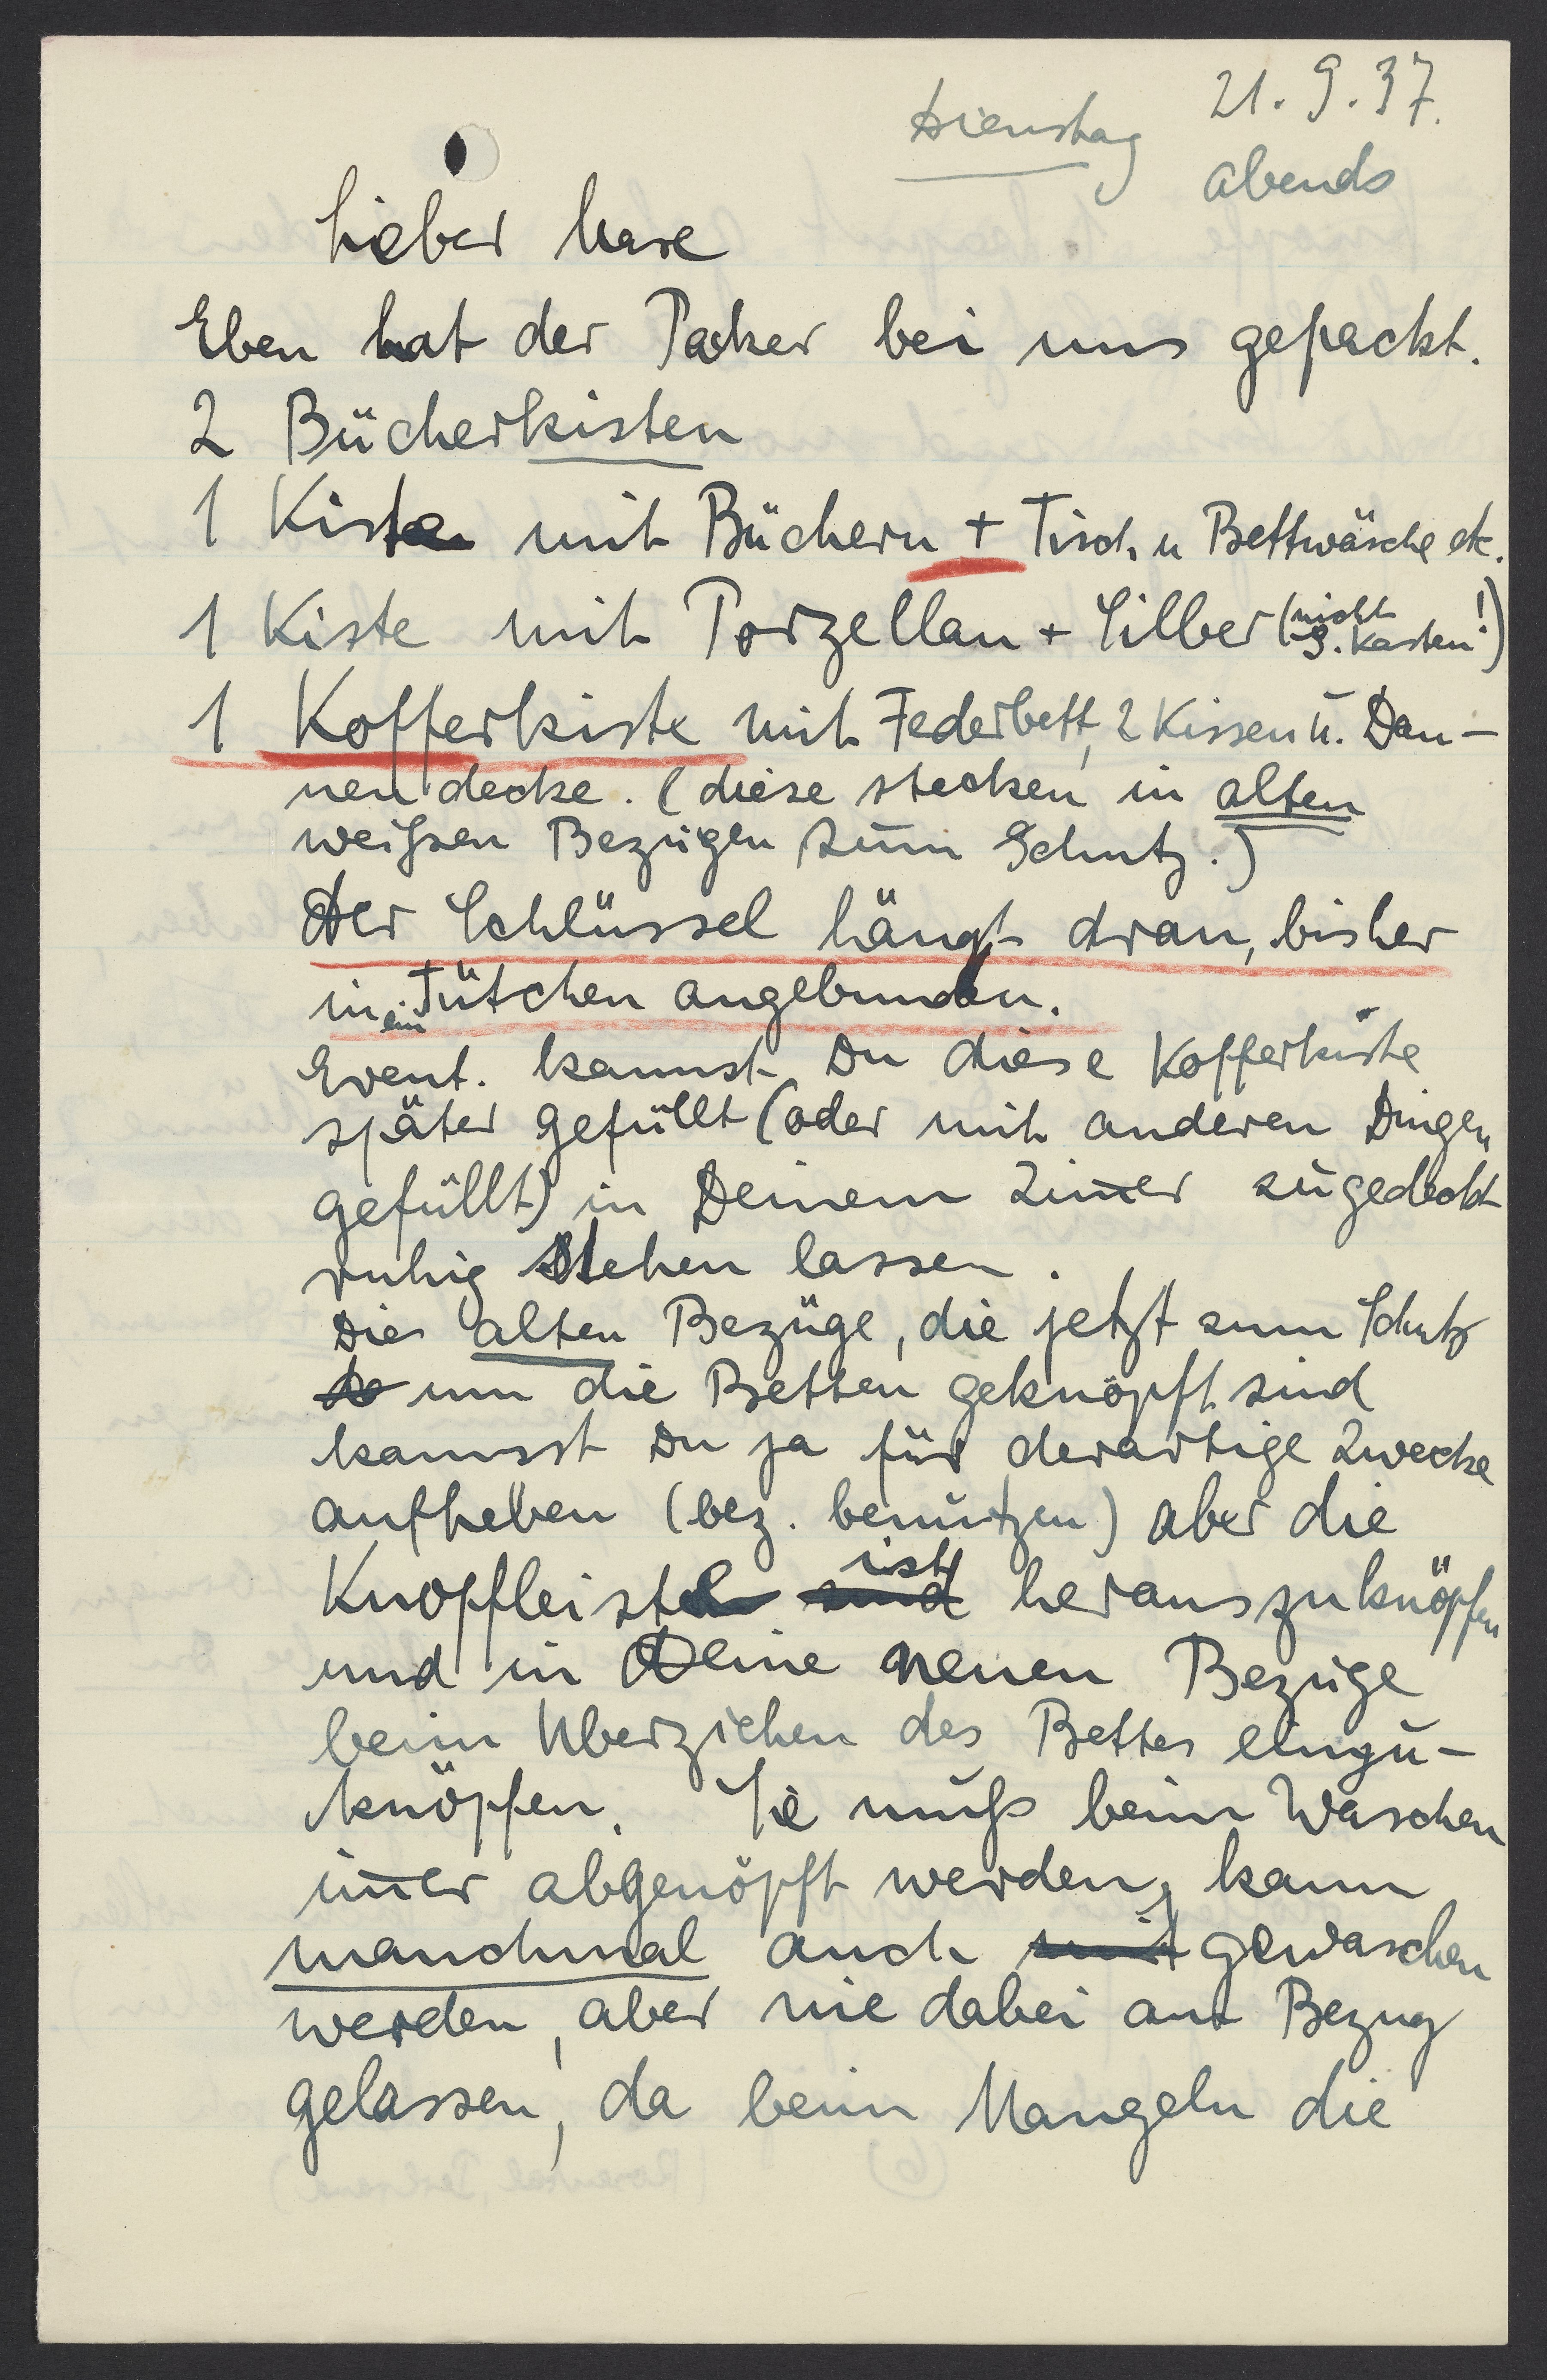 Dienstag 21.9.37.
abends
Lieber Hase
Eben hat der Packer bei uns gepackt.
2 Bücherkisten
1 Kiste mit Büchern + Tisch u Bettwäsche etc.
1 Kiste mit Porzellan + Silber (nicht S. Kasten!)
1 Kofferkiste mit Federbett, 2 Kissen u. Dau-
nendecke. (diese stecken in alten
weißen Bezügen zum Schutz.)
Der Schlüssel hängt dran, bisher
in ein Tütchen angebunden.
Event. kannst Du diese Kofferkiste
später gefüllt (oder mit anderen Dingen
gefüllt) in Deinem Zim̅er zugedeckt
ruhig stehen lassen.
Die alten Bezüge, die jetzt zum Schutz
um die Betten geknöpft sind
kannst Du ja für derartige Zwecke
aufheben (bez. benutzen) aber die
Knopfleiste ist herauszuknöpfen
und in Deine neuen Bezüge
beim Überziehen des Bettes einzu-
knöpfen. Sie muß beim Waschen
im̅er abgenöpft werden, kann
manchmal auch mit gewaschen
werden, aber nie dabei am Bezug
gelassen, da beim Mangeln die